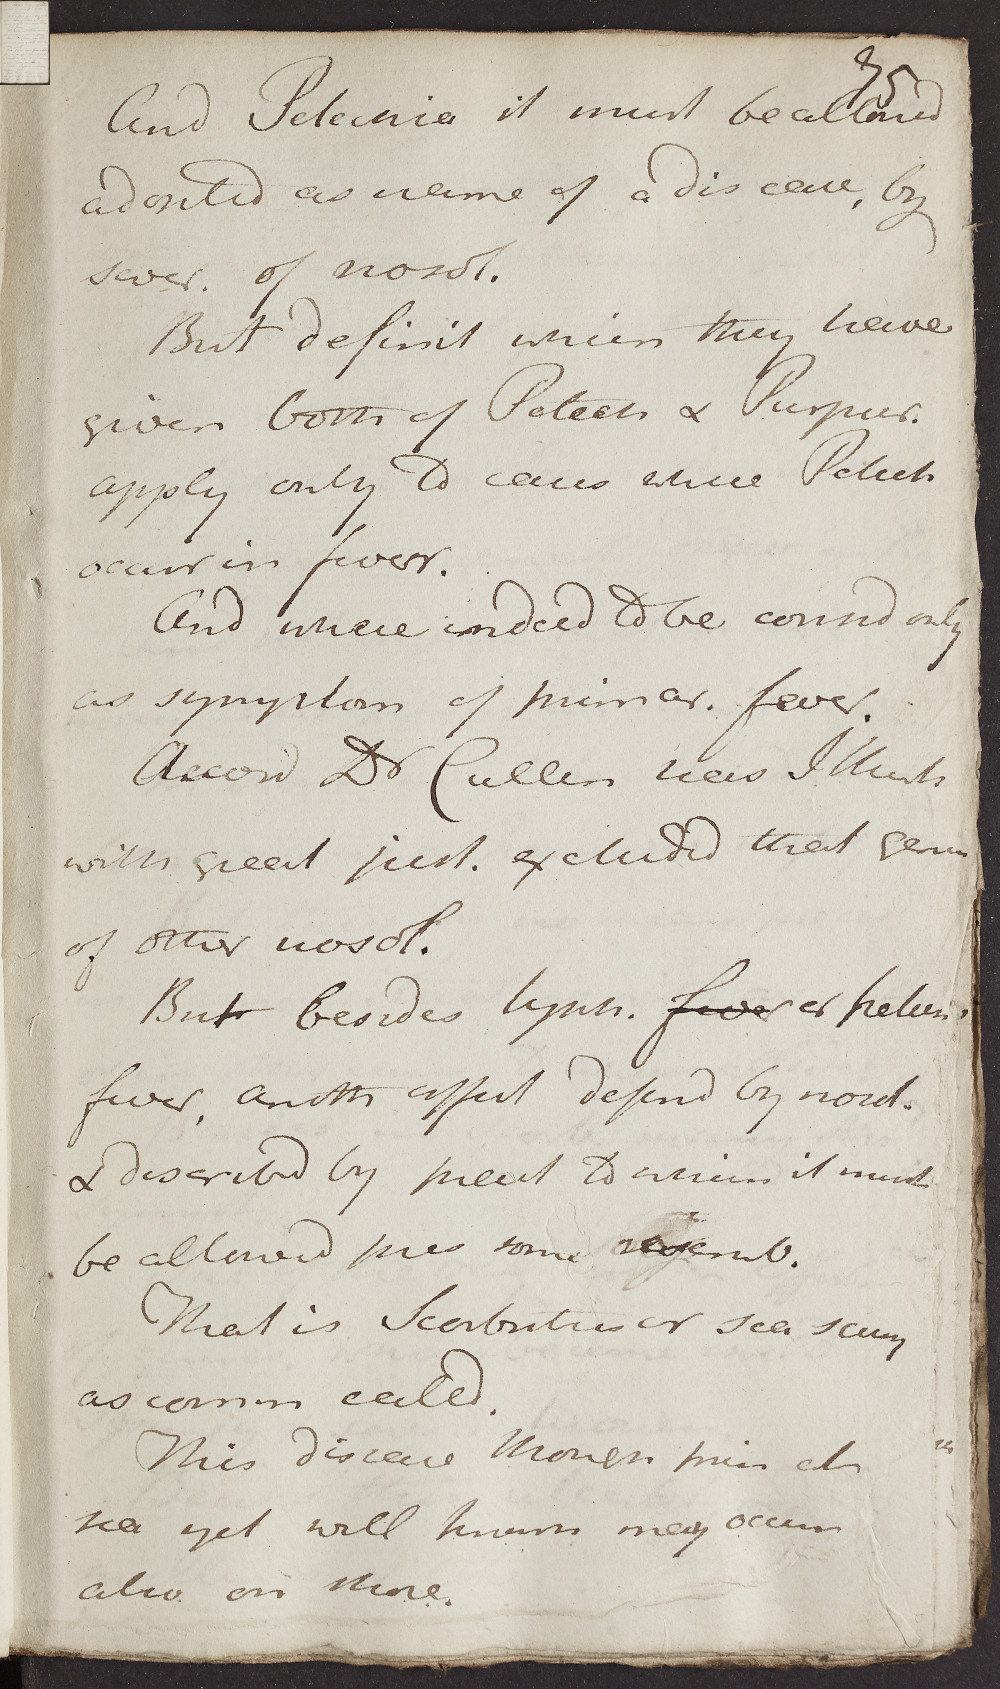 35
And Petechia it must be allowd
adopted as name of a disease, by
sever. of nosol.
But definit which they have
given both of Petech & Purpur.
apply only to cases where Petech
occur in fever.
And where indeed to be considd only
as symptom of primar. fever.
Accord Dr Cullen has I think
with great just. excluded that genus
of other nosol.
But besides typh. fever or petech
fever, anoth affect defind by nosol.
& described by pract to which it must
be allowed pres some resemb.
That is Scorbutus or sea scurvy
as comm called.
This disease though prin at
sea yet well known may occur
also on shore.